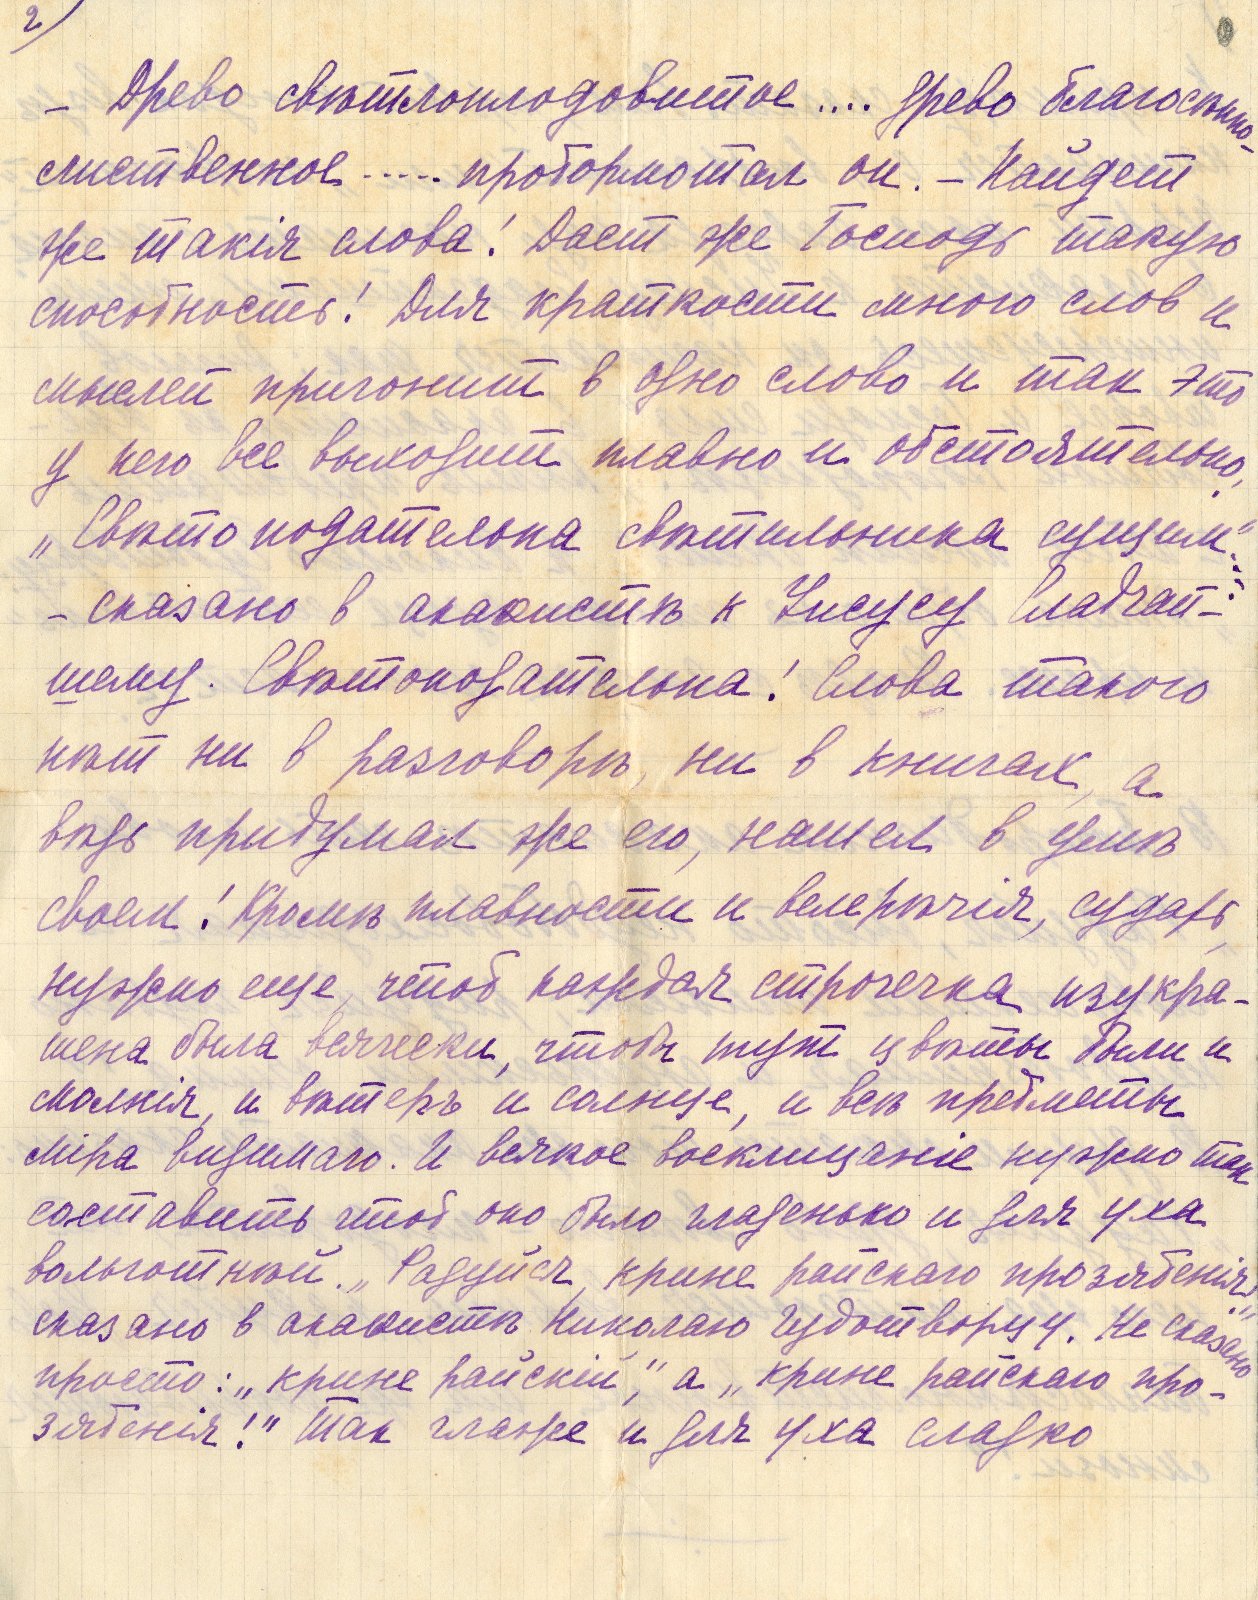 2)
– Древо свѣтлоплодовитое .... древо благосѣнно-
лиственное ..... пробормотал он. – Найдет
же такія слова! Дает же Господь такую
способность! Для краткости много слов и
мыслей пригонит в одно слово и так это
у него все выходит плавно и обстоятельно.
„Свѣтоподательна свѣтильника сущим"...
– сказано в акаѳистѣ к Іисусу Сладчай-
шему. Свѣтоподательна! Слова такого
нѣт ни в разговорѣ, ни в книгах, а
вѣдь придумал же его, нашел в умѣ
своем! Кромѣ плавности и велерѣчія, сударь,
нужно еще, чтоб каждая строчечка изукра-
шена была всячески, чтобы тут цвѣты были и
молнія, и вѣтеръ и солнце, и всѣ предметы
міра видимаго. И всякое восклицаніе нужно так
составить чтоб оно было гладенько и для уха
вольготнѣй. „Радуйся, крине райскаго прозябенія!"
сказано в акаѳистѣ Николаю Чудотворцу. Не сказано
просто: „крине райскій," а „крине райскаго про-
зябенія!" Так глаже и для уха сладко